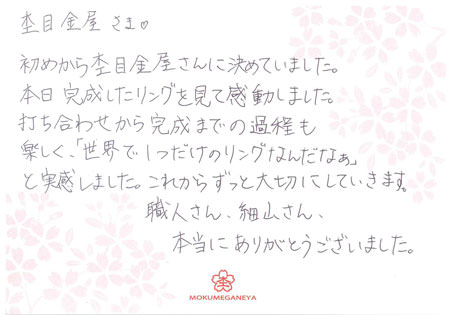 杢目金屋 さま♡
初めから杢目金屋さんに決めていました。
本日 完成したリングを見て感動しました。
打ち合わせから完成までの過程も
楽しく、「世界で1つだけのリングなんだなぁ」
と実感しました。これからずっと大切にしていきます。
職人さん、細山さん、
本当にありがとうございました。
MOKUMEGANEYA